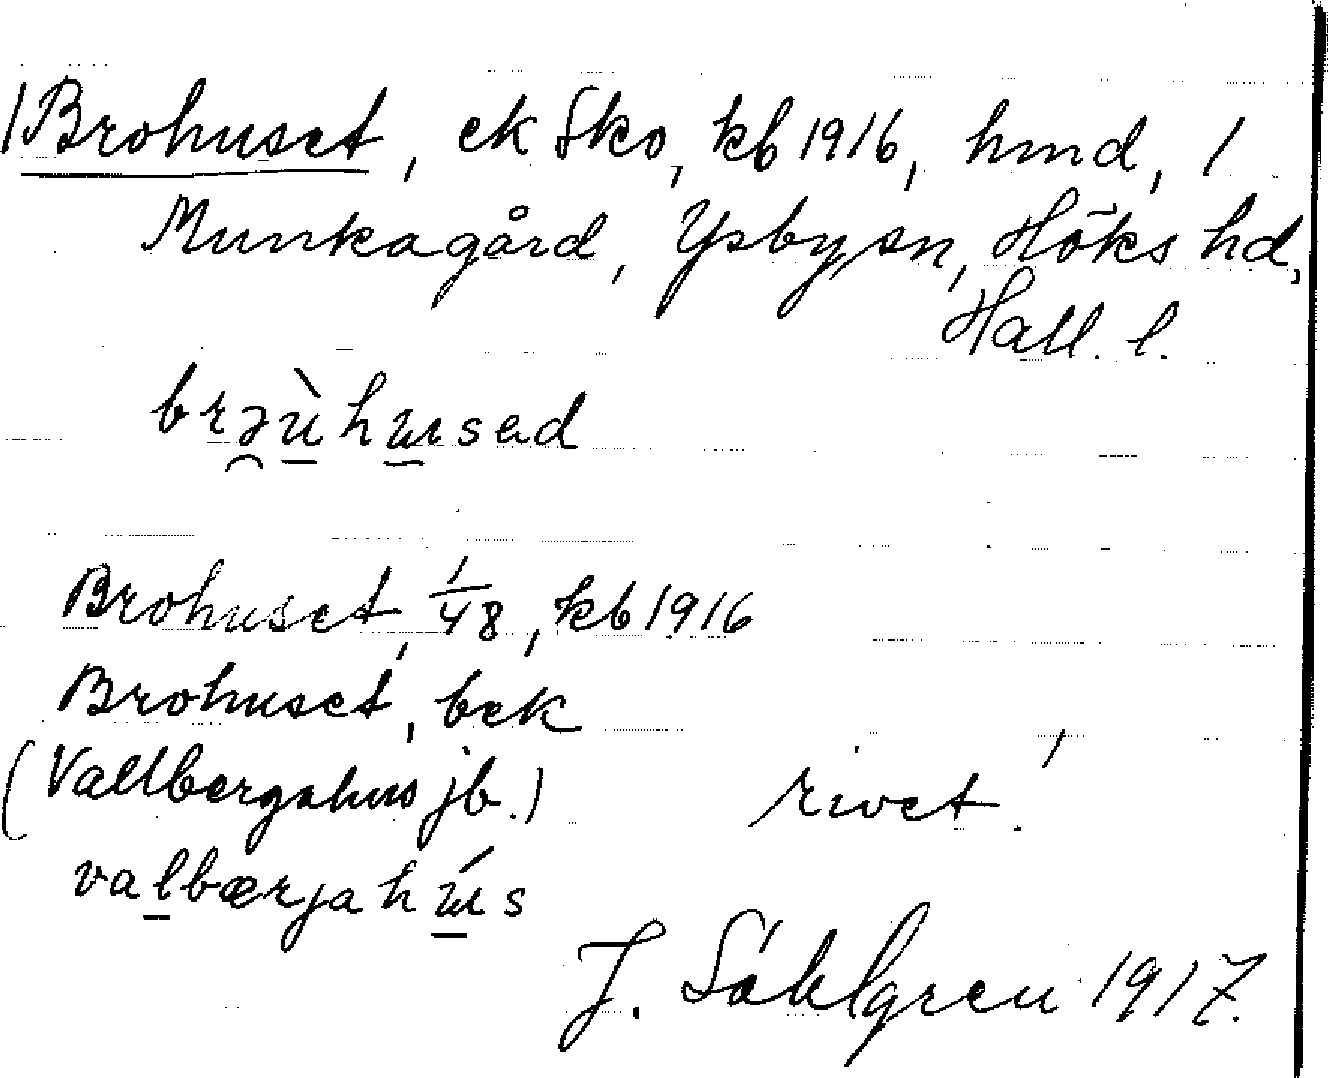 1 Brohuset, ek Sko, kb 1916, hmd, 1
Munkagård, Ysby sn, Höks hd,
Hall. l.
brəùhusad
Brohuset, 1/48, kb 1916
Brohuset, bek
(Vallbergahus jb.) rivet!
valbærjahús
J. Sahlgren 1917.